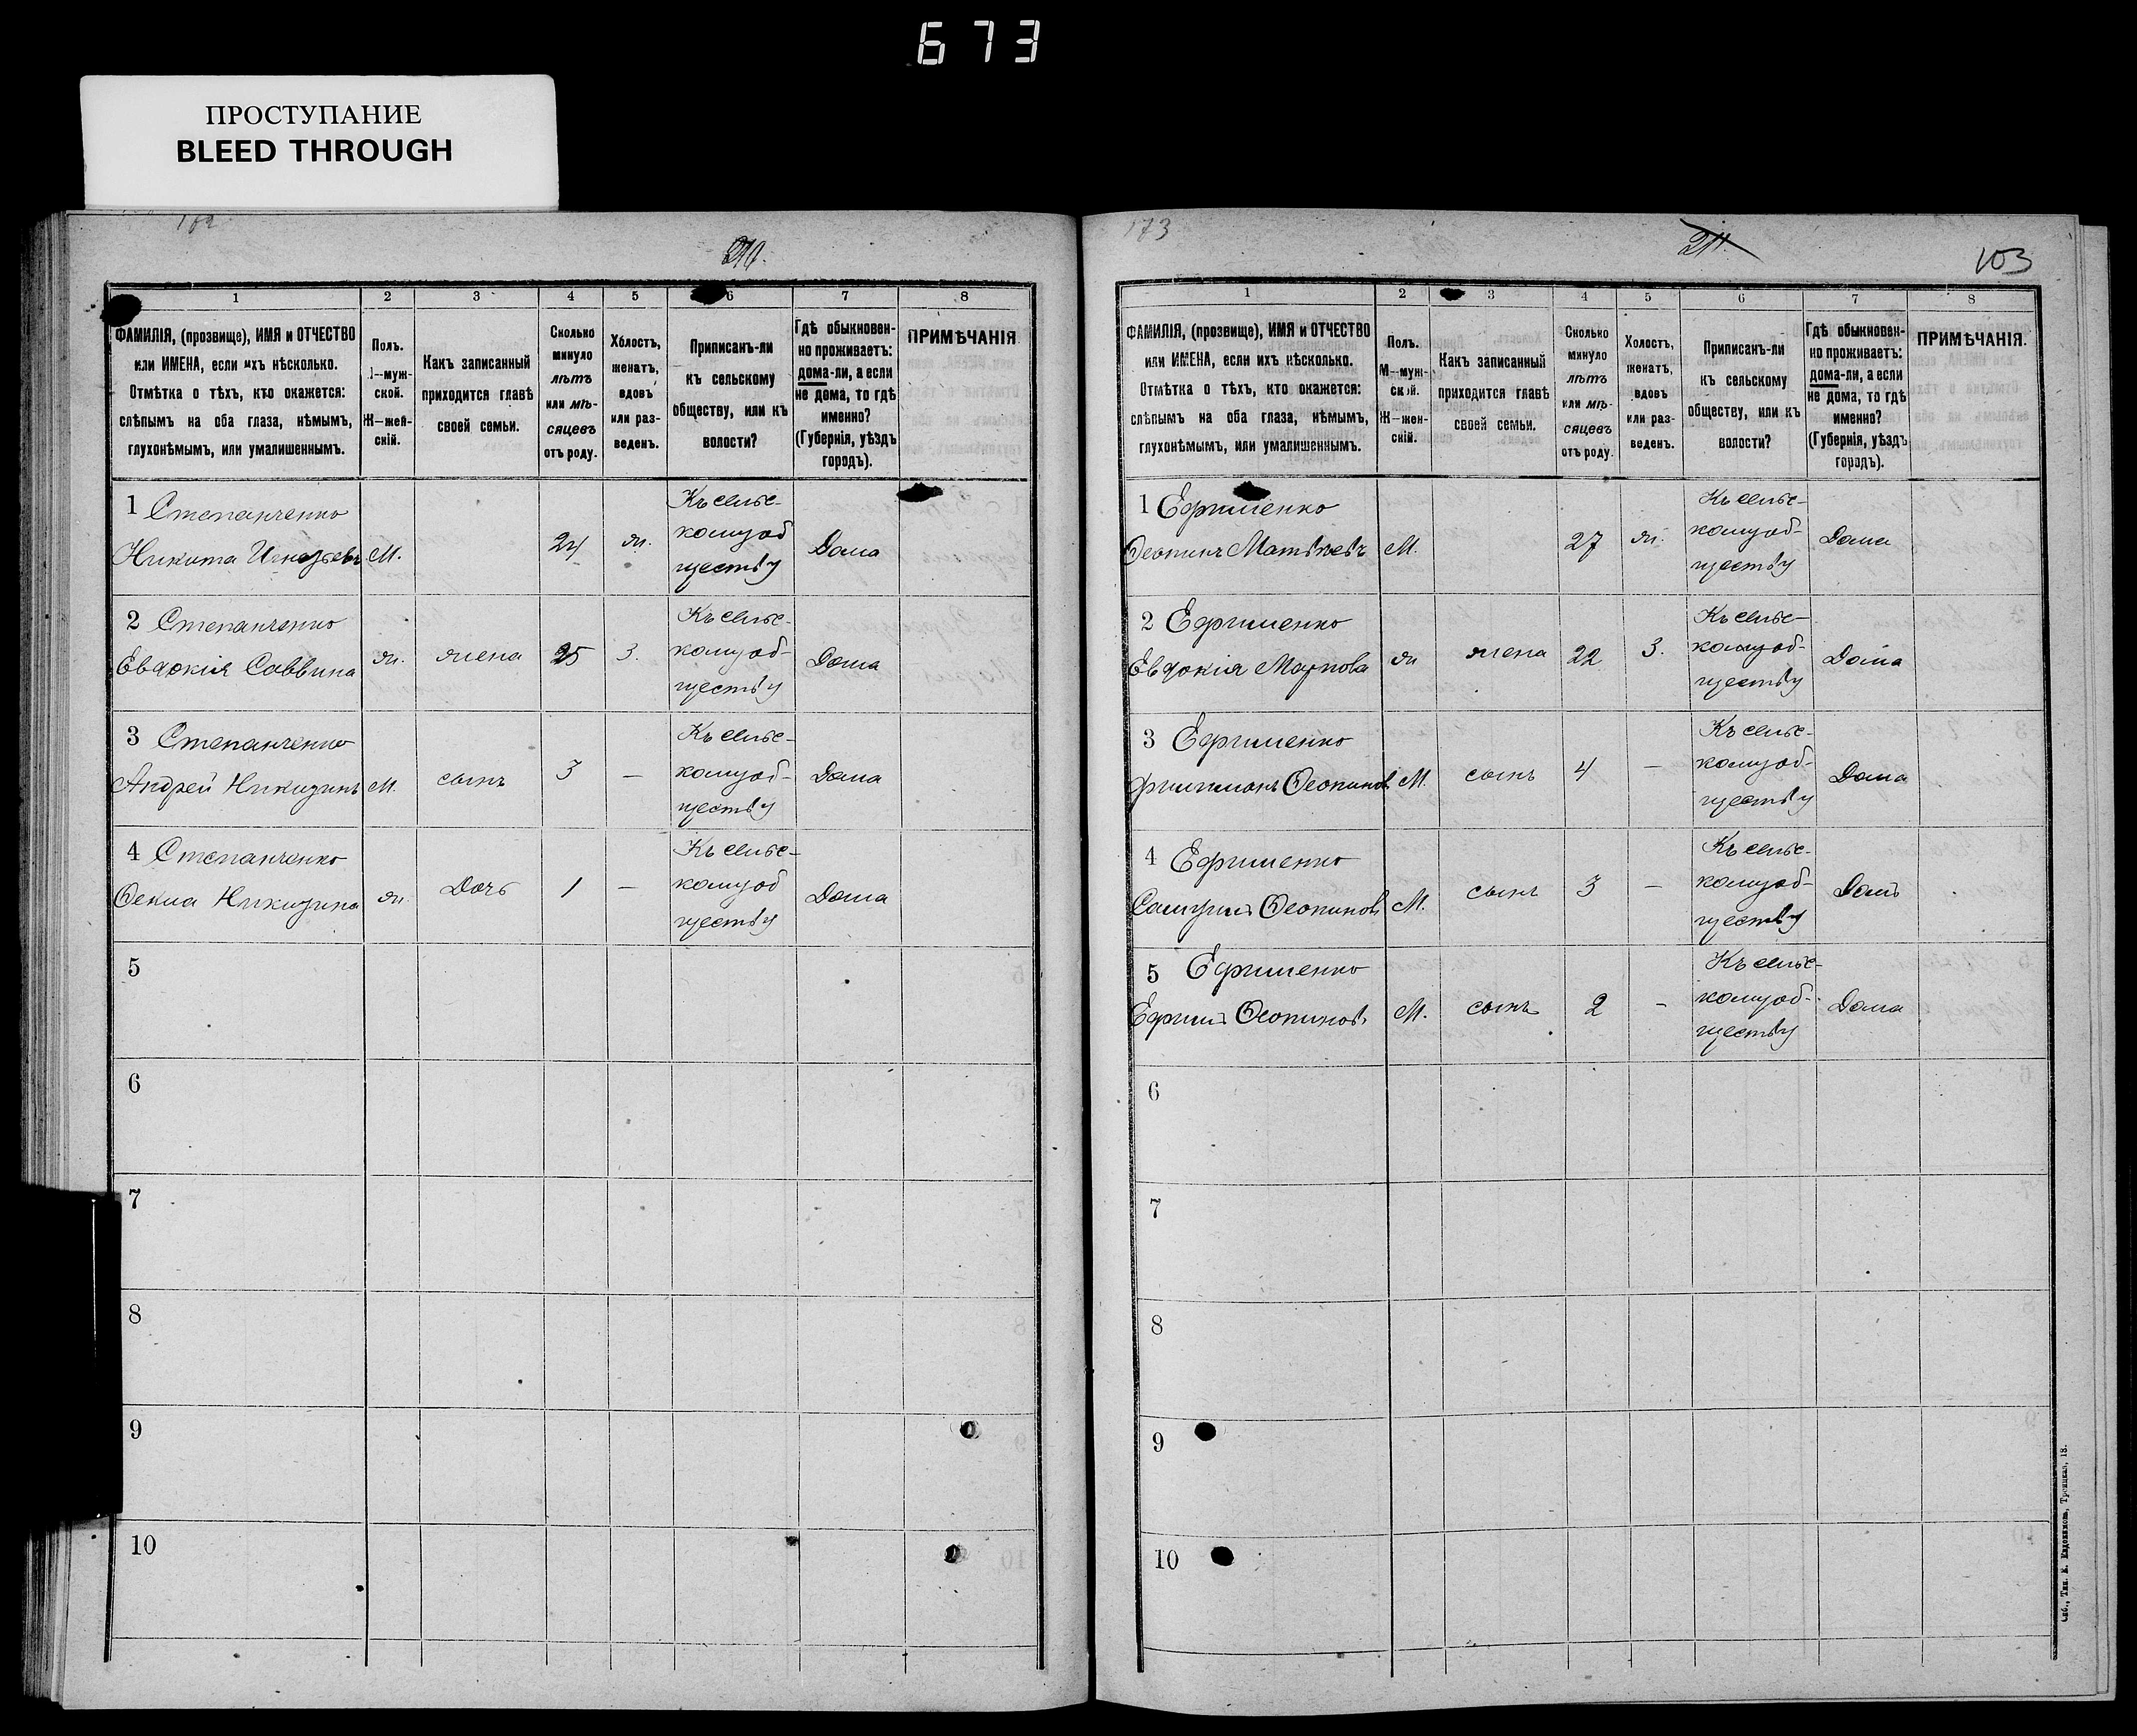 673
ПРОСТУПАНИЕ
BLEED THROUGH
210.
1 2 3 4 5 6 7 8
ФАМИЛІЯ, (прозвище), ИМЯ и ОТЧЕСТВО
или ИМЕНА, если ихъ нѣсколько.
Отмѣтка о тѣхъ, кто окажется:
слѣпымъ на оба глаза, нѣмымъ,
глухонѣмымъ, или умалишеннымъ.
Полъ.
М—муж-
ской.
Ж—жен-
скій.
Какъ записанный
приходится главѣ
своей семьи.
Сколько
минуло
лѣтъ
или мѣ-
сяцевъ
отъ роду.
Холостъ,
женатъ,
вдовъ
или раз-
веденъ.
Приписанъ-ли
къ сельскому
обществу, или къ
волости?
Гдѣ обыкновен-
но проживаетъ:
дома-ли, а если
не дома, то гдѣ
именно?
(Губернія, уѣздъ
городъ).
ПРИМѢЧАНІЯ
1 Степанченко
Никита Игнатьевъ М. 24 ж. Къ сельс-
кому об
ществу Дома
2 Степанченко
Евдокія Саввина ж. жена 25 З. Къ сельс-
кому об-
ществу Дома
3 Степанченко
Андрей Никитинъ М. сынъ 3 — Къ сельс-
кому об-
ществу Дома
4 Степанченко
Ѳекла Никитина ж. Дочь 1 — Къ сельс-
кому об
ществу Дома
5
6
7
8
9
10
173
211.
103
1 2 3 4 5 6 7 8
ФАМИЛІЯ, (прозвище), ИМЯ и ОТЧЕСТВО
или ИМЕНА, если ихъ нѣсколько.
Отмѣтка о тѣхъ, кто окажется:
слѣпымъ на оба глаза, нѣмымъ,
глухонѣмымъ, или умалишеннымъ.
Полъ.
М—муж-
ской.
Ж—жен-
скій.
Какъ записанный
приходится главѣ
своей семьи.
Сколько
минуло
лѣтъ
или мѣ-
сяцевъ
отъ роду.
Холостъ,
женатъ,
вдовъ
или раз-
веденъ.
Приписанъ-ли
къ сельскому
обществу, или къ
волости?
Гдѣ обыкновен-
но проживаетъ:
дома-ли, а если
не дома, то гдѣ
именно?
(Губернія, уѣздъ
городъ).
ПРИМѢЧАНІЯ.
1 Ефименко
Матвѣевъ М. 27 ж. Къ сельс-
кому об-
ществу Дома
2 Ефименко
Евдокія Маркова ж жена 22 З. Къ сельс-
кому об-
ществу Дома
3 Ефименко
М. сынъ 4 — Къ сельс-
кому об-
ществу Дома
4 Ефименко
М. сынъ 3 — Къ сельс-
кому об-
ществу Дома
5 Ефименко
Ефимъ М. сынъ 2 - Къ сельс-
кому об-
ществу Дома
6
7
8
9
10
Спб., Тип. Е. Евдокимова, Троицкая, 18.